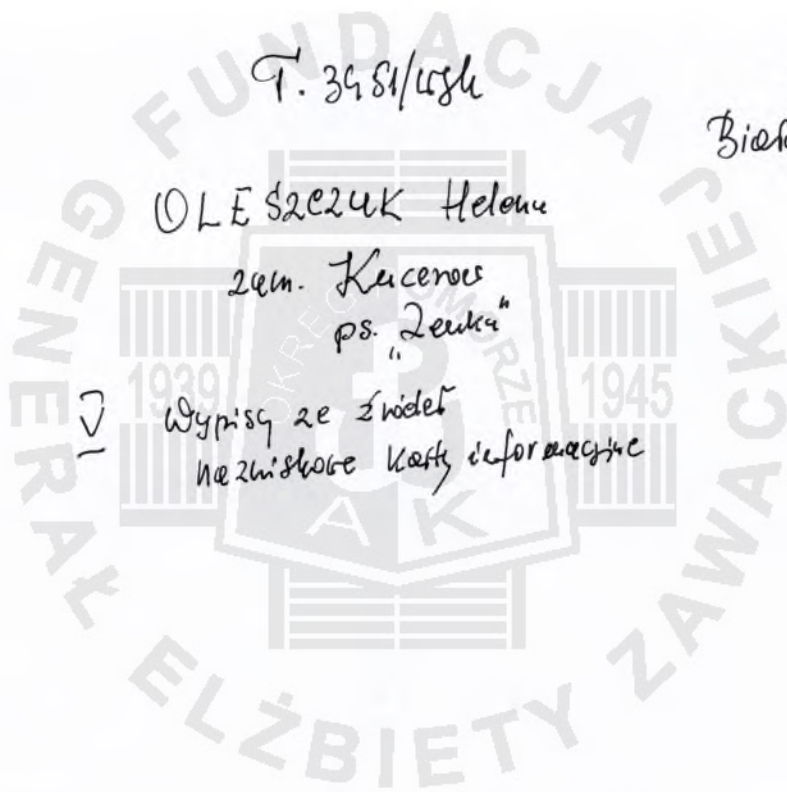 T. 3451/WSK
OLESZCZUK Helena
zam. Kucerowa
ps. "Zenka"
V Wypisy ze źródeł
nazwiskowe karty informacyjne
FUNDACJA GENERAŁ ELŻBIETY ZAWACKIEJ
1939 1945
AK